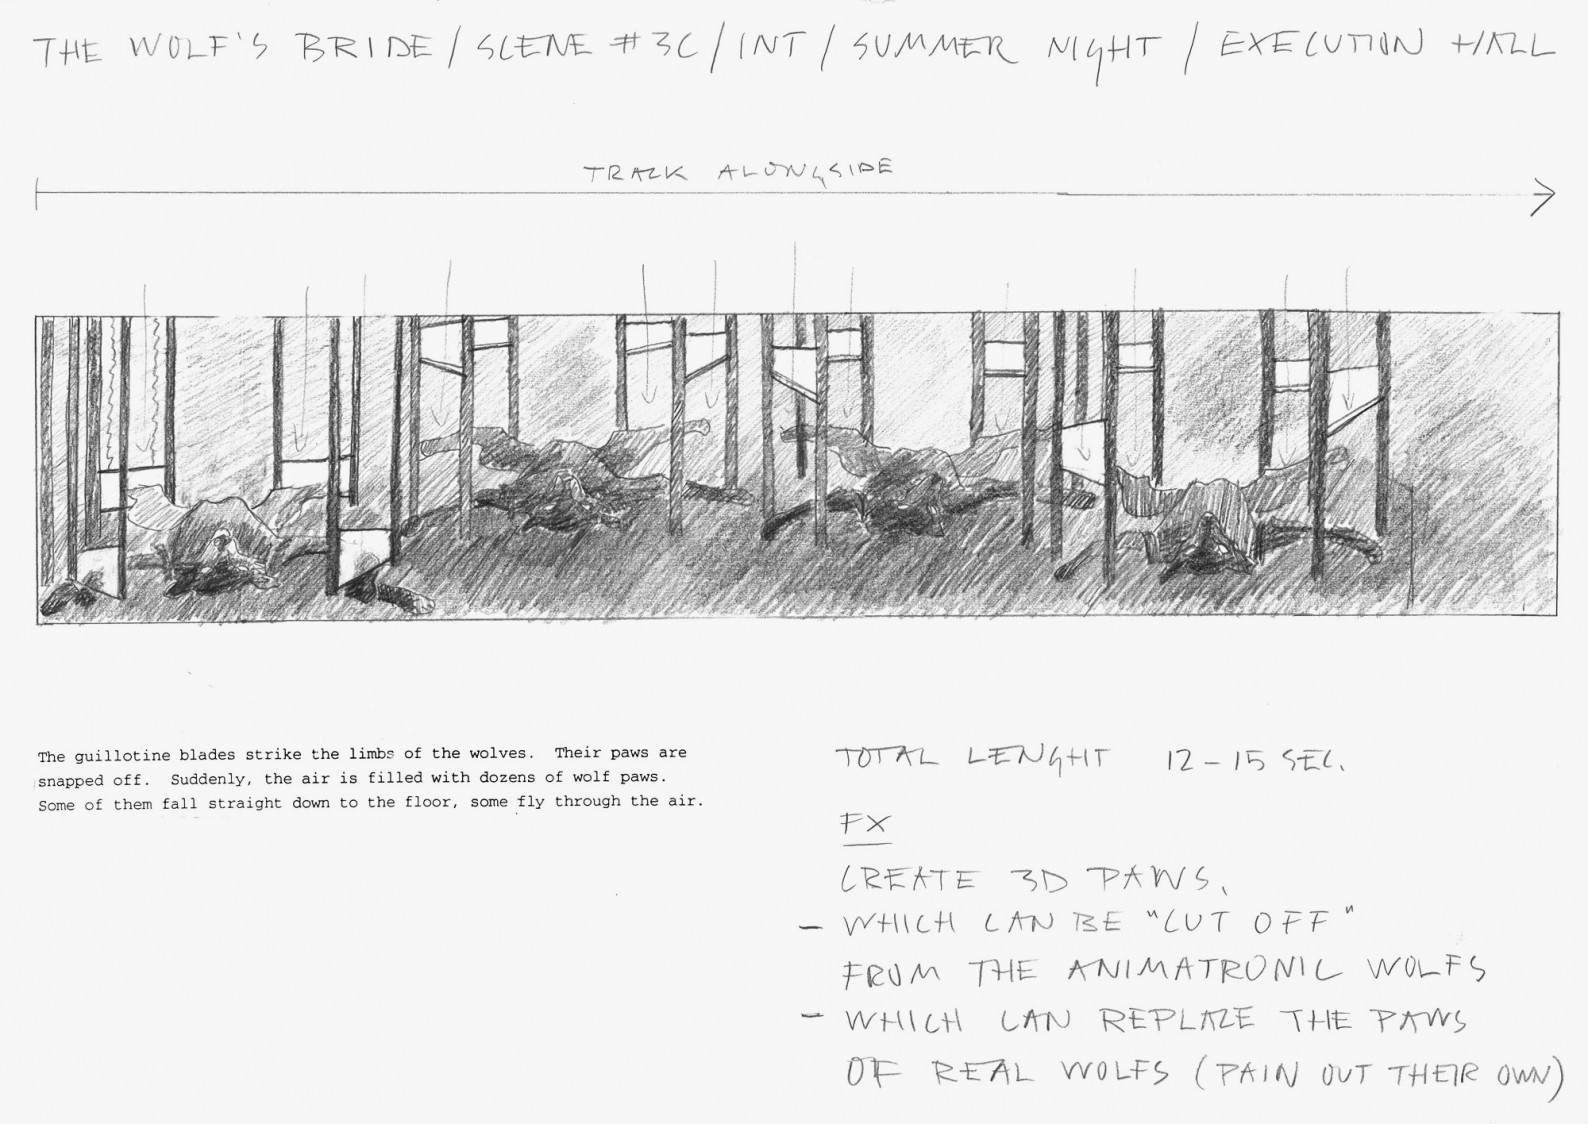 THE WOLF'S BRIDE / SCENE #3C / INT / SUMMER NIGHT / EXECUTION HALL
TRACK ALONGSIDE
The guillotine blades strike the limbs of the wolves. Their paws are
snapped off. Suddenly, the air is filled with dozens of wolf paws.
Some of them fall straight down to the floor, some fly through the air.
TOTAL LENGHT 12-15 SEC.
FX
CREATE 3D PAWS,
- WHICH CAN BE "CUT OFF"
FROM THE ANIMATRONIC WOLFS
- WHICH CAN REPLACE THE PAWS
OF REAL WOLFS (PAIN OUT THEIR OWN)